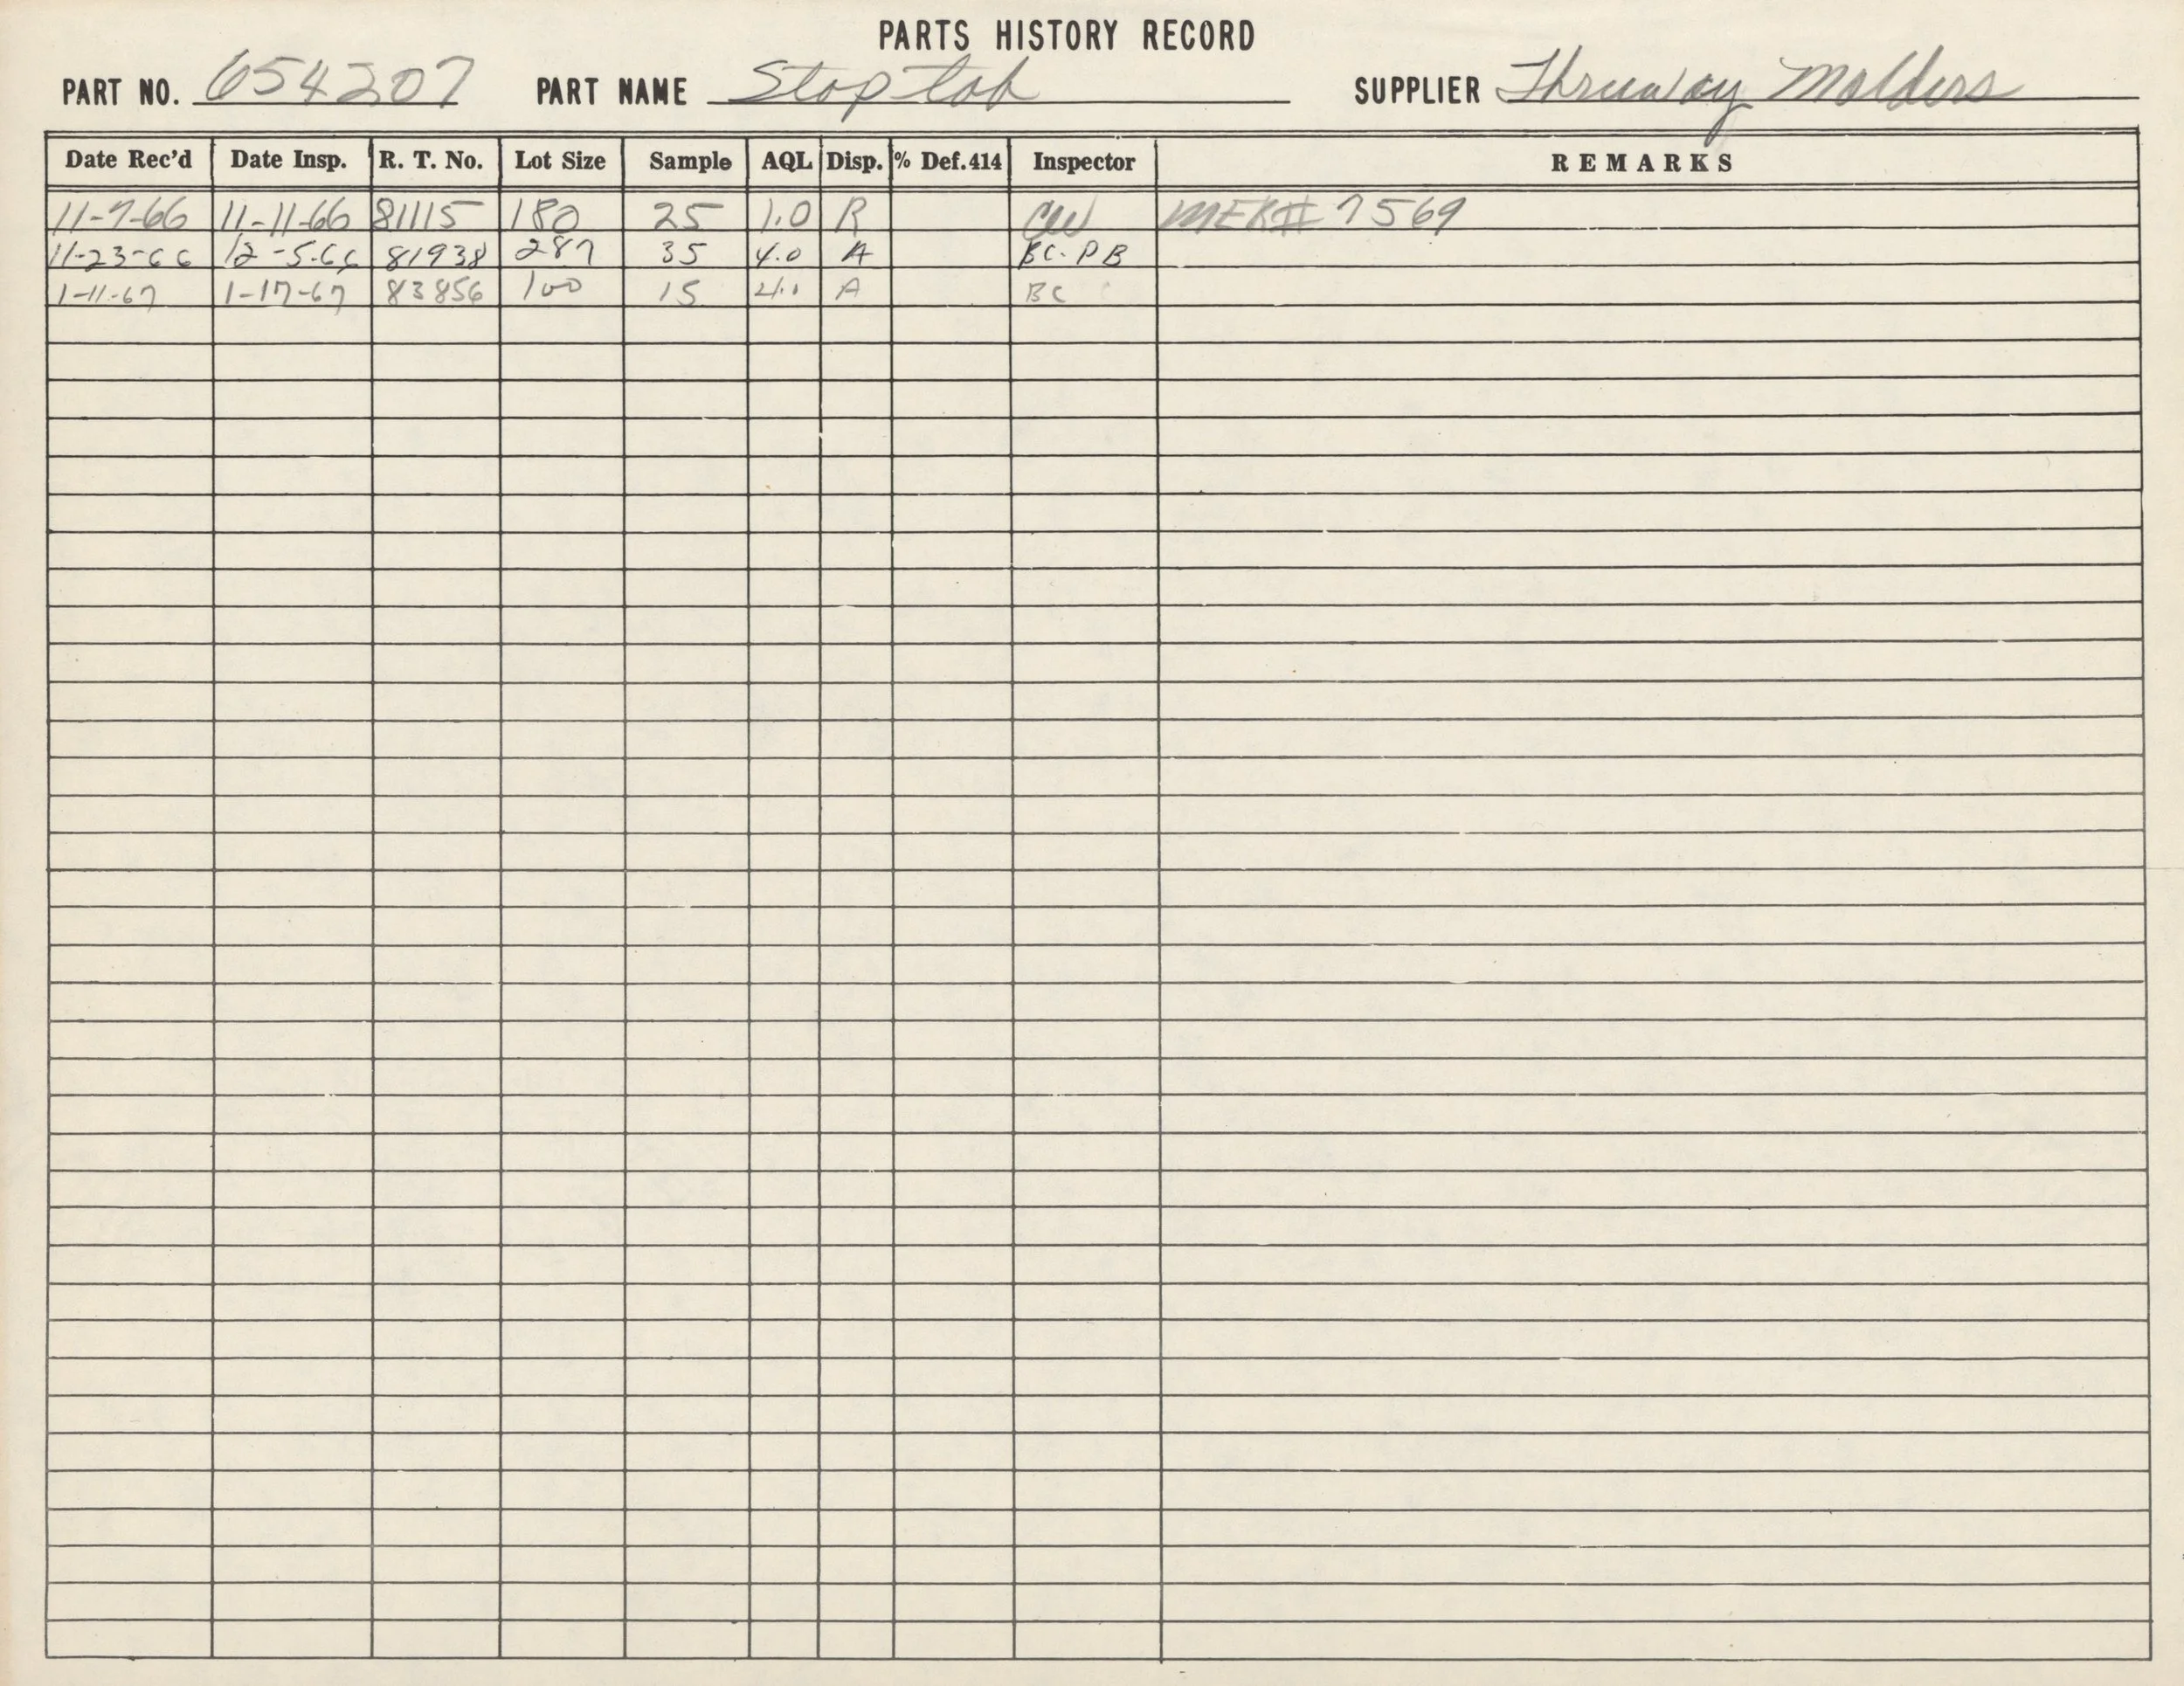 PARTS HISTORY RECORD
PART NO. 654207 PART NAME Stop tab SUPPLIER Thruway Molders
Date Rec'd Date Insp. R. T. No. Lot Size Sample AQL Disp. % Def.414 Inspector REMARKS
11-7-66 11-11-66 81115 180 25 1.0 R CW MER# 7569
11-23-66 12-5-66 81938 287 35 4.0 A BC-PB
1-11-67 1-17-67 83856 100 15 A BC